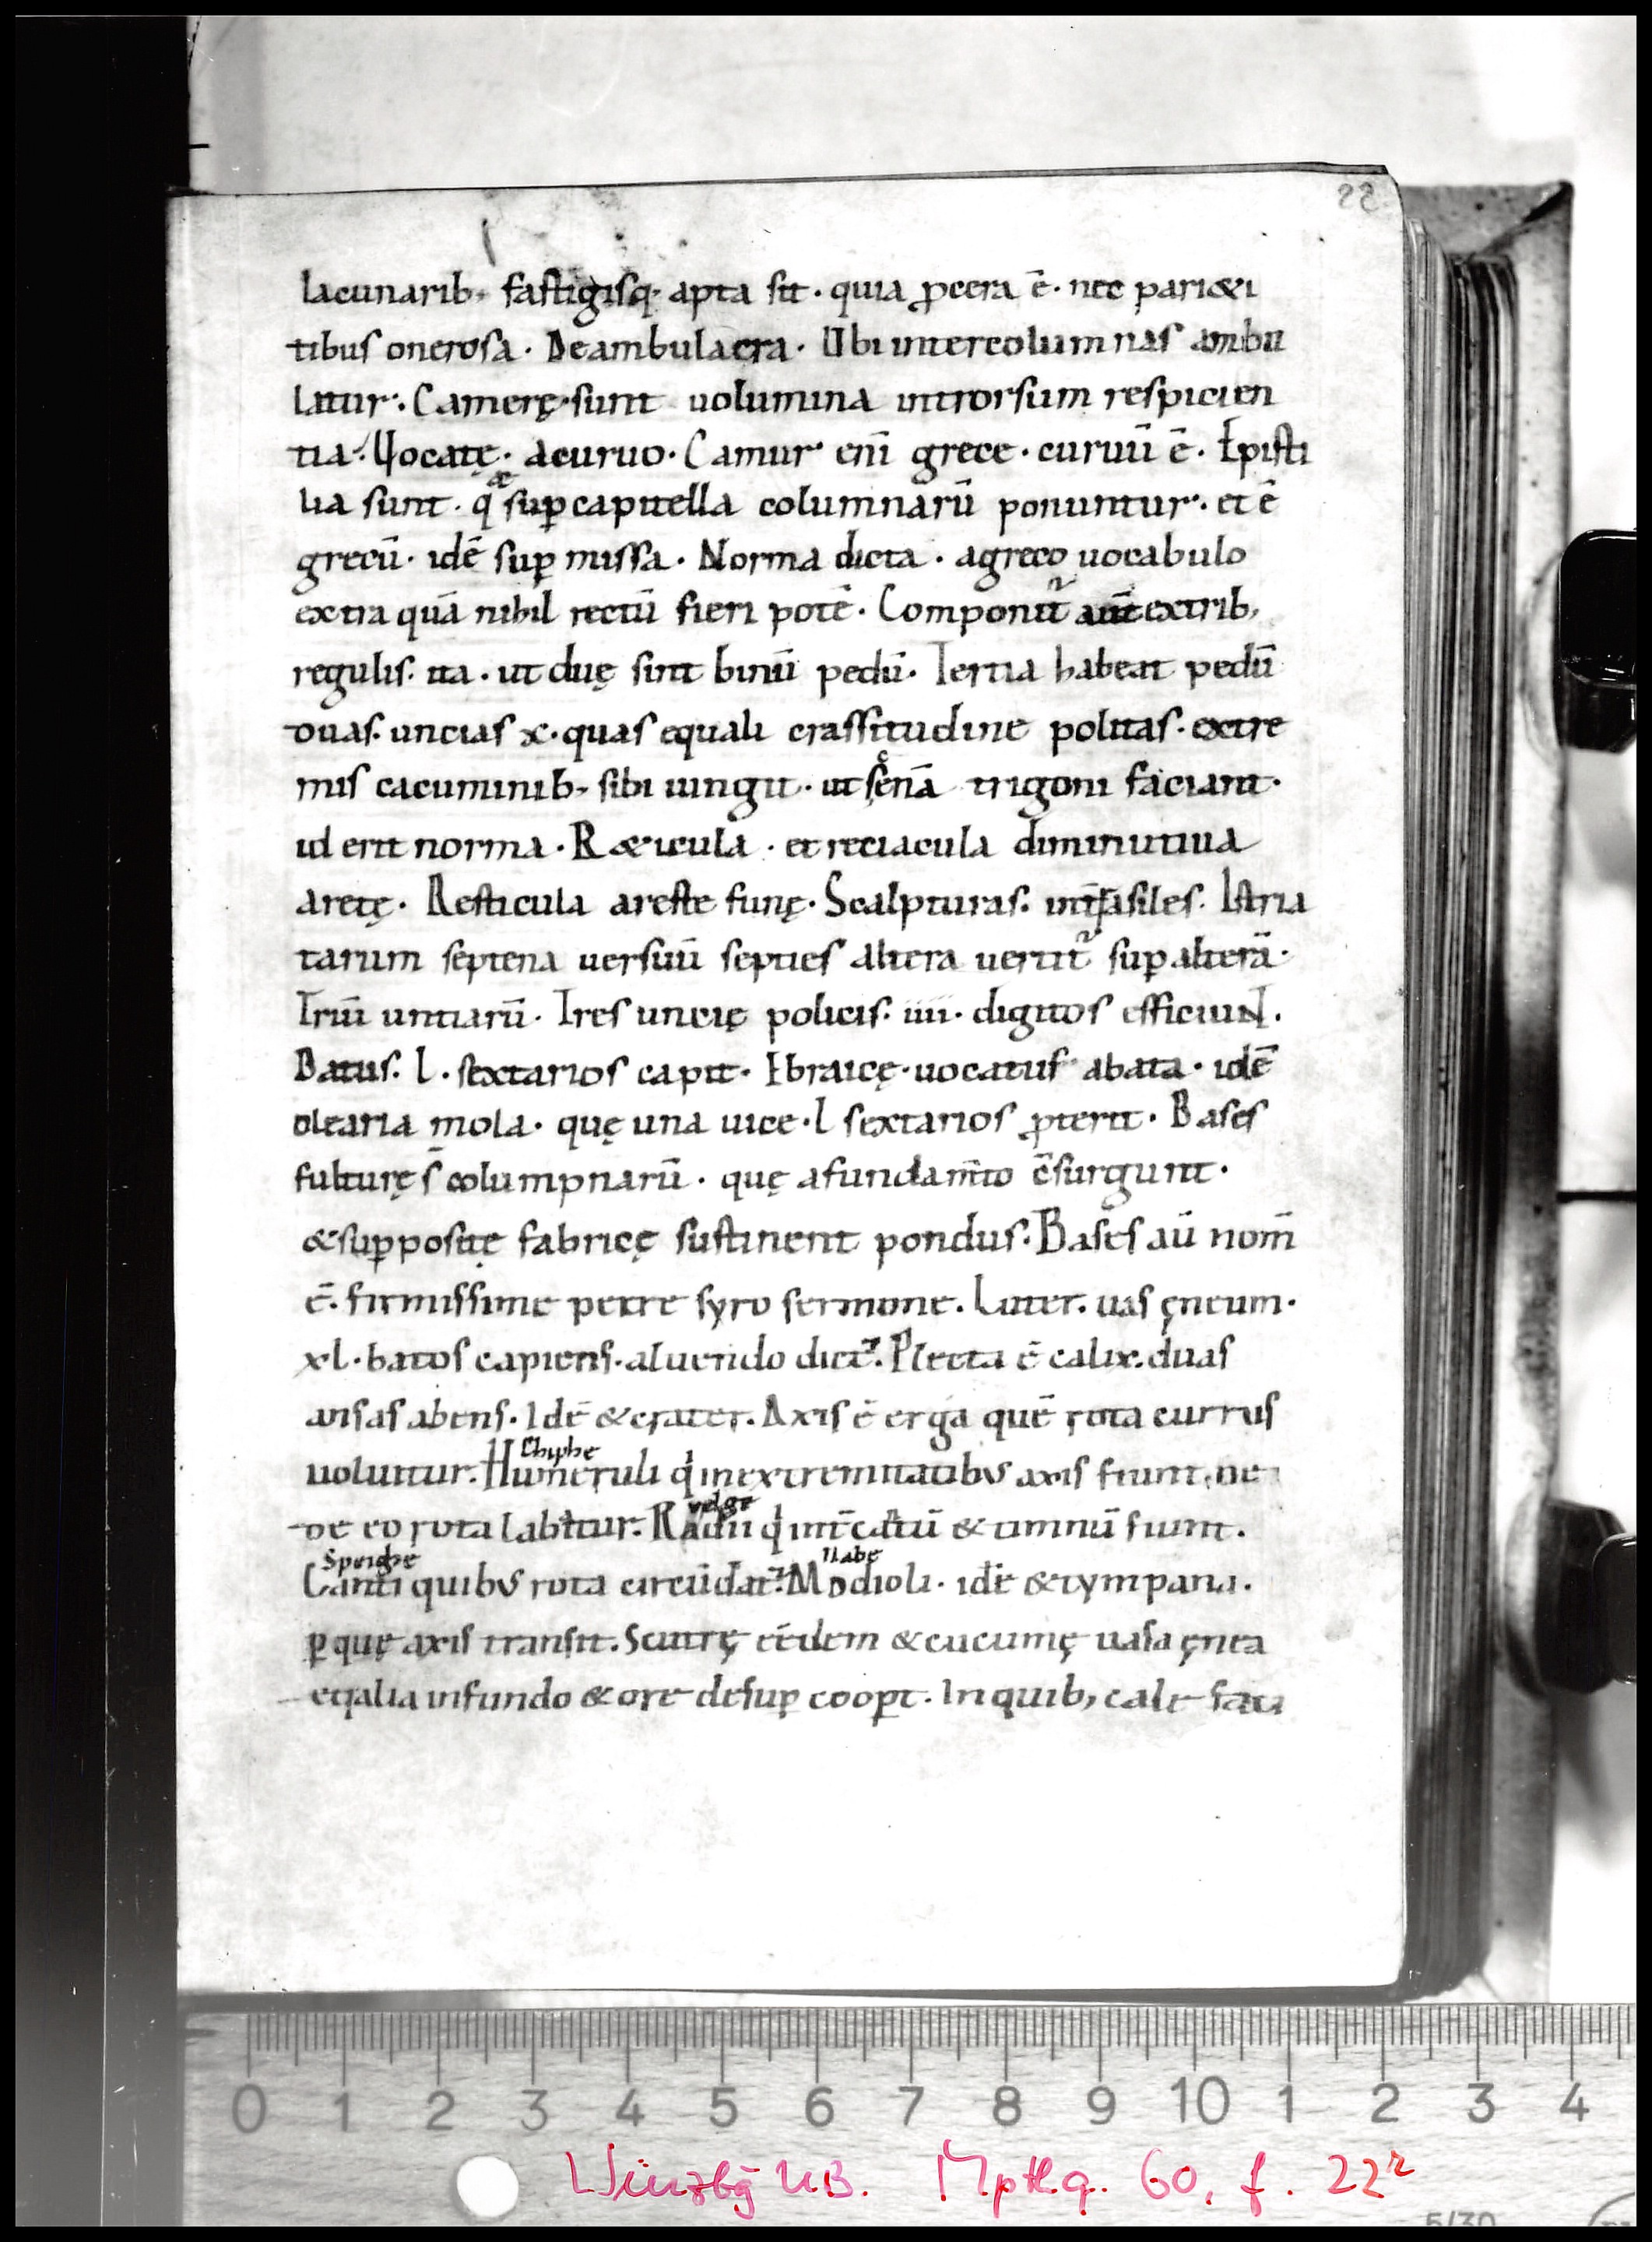 22
lacunarib; fastigiisq; apta sit · quia ꝓcera ē · nec pari&i
tibus onerosa · Deambulacra · Ubi intercolumnas ambu
latur · Camerę · sunt uolumina introrsum respicien
tia · Vocatę · acuruo · Camur enī grece · curuū ē · Episti
lia sunt · q̄ suꝑ capitella columnarū ponuntur · et ē
grecū · idē suꝑ missa · Norma dicta · agreco uocabulo
extra quā nihil rectū fieri potē · Componit᷑ aut̄ extrib;
regulis · ita · ut duę sint binū pedū · Tertia habeat pedū
duas · uncias x · quas equali crassitudine politas · extre
mis cacuminib; sibi iungit · ut scenā trigoni faciant ·
id erit norma · R&icula · et reciacula diminutiua
aretę · Resticula areste funę · Scalpturas · int̄rasiles · Istria
tarum septena uersuū septies altera uertit᷑ suꝑ alterā ·
Triū untiarū · Tres uncię policis · iiii · digitos efficiuNT ·
Batus · l · sextarios capit · Ebraicę · uocatus abata · idē
olearia mola · quę una uice · l sextarios ꝓterit · Bases
fulturę s̄ columpnarū · quę afundam̄to c̄surgunt ·
& suꝑpositę fabricę sustinent pondus · Bases aū nom̄
ē · firmissime petre syro sermone · Luter · uas ęneum ·
xl · batos capiens · aluendo dict᷑ · Plecta ē calix · duas
ansas abens · Idē & crater · Axis ē erga quē rota currus
uoluitur · Humeruli q̇ inextremitatibus axis fiunt · ne
Chiphe
de eo rota labatur · Radii q̇ int̄ cātū & timnū fiunt ·
velge
Canti quibus rota circūdat᷑ · Modioli · idē & tympana ·
Speighe Nabe
ꝑ quę axis transit · Scutrę eēdem & cucumę uasa ęnea
eqalia infundo & ore desuꝑ cooꝑt · In quib; cale fatt
0 1 2 3 4 5 6 7 8 9 10 1 2 3 4
Würzbg UB. Mpthq. 60, f. 22r
5/30